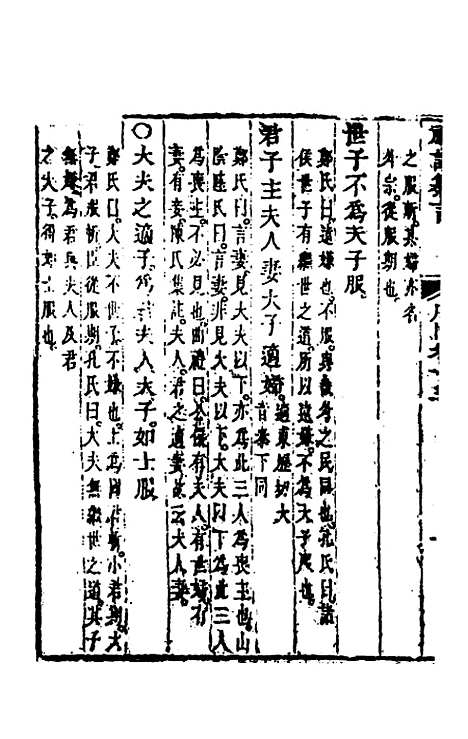 之服斬其婦亦名
為宗從服期也
世子不為天子服
鄭氏曰遠嫌也不服與畿外之民同也孔氏曰諸
侯世子有繼世之道所以遠嫌不為天子服也
君子主夫人妻大子適婦適東歷切大
音泰下同
鄭氏曰言妻見大夫以下亦為此三人為喪主也山
陰陸氏曰言妻見大夫以下大夫以下為此三人
為喪主不必見也曲禮曰公侯有夫人有世婦有
妻有妾陳氏集說夫人君之適妻故云夫人妻
○大夫之適子為君夫人大子如士服
鄭氏曰大夫不世子不嫌也士為國君斬小君期大
子君服斬臣從服期孔氏曰大夫無繼世之道其子
無嫌為君與夫人及君
之大子得如士服也